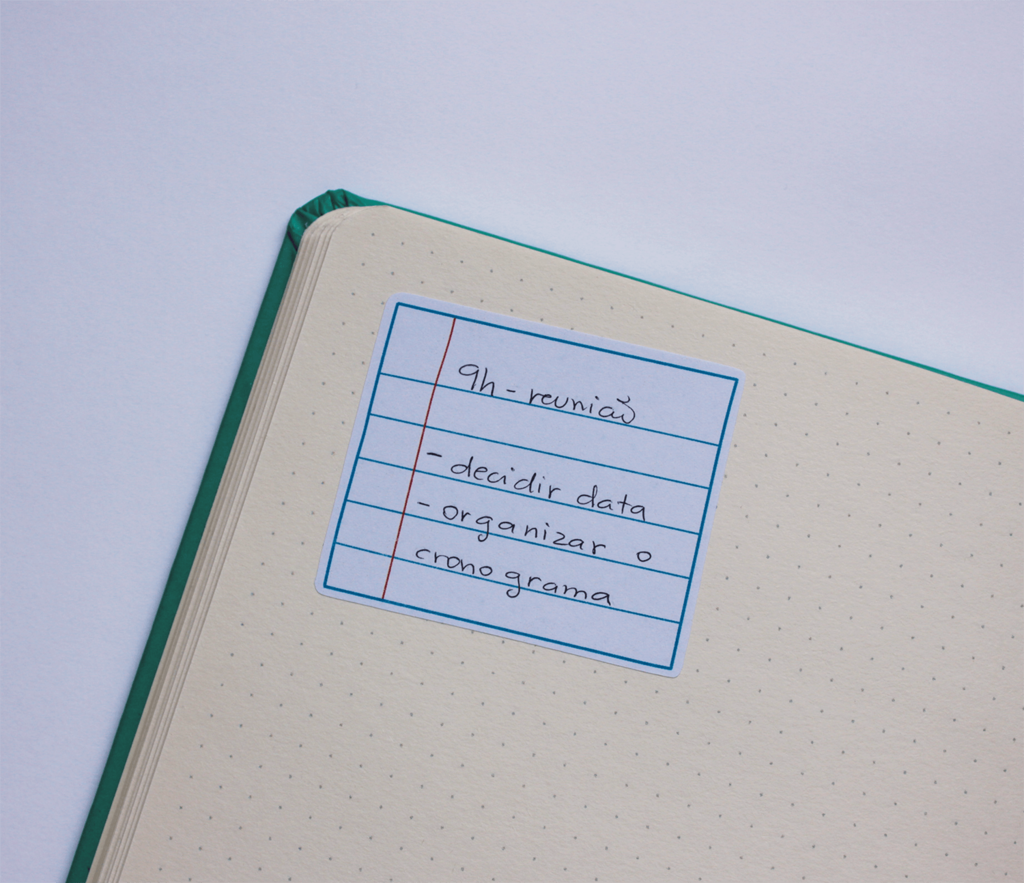 9h - reunião
- decidir data
- organizar o
crono grama